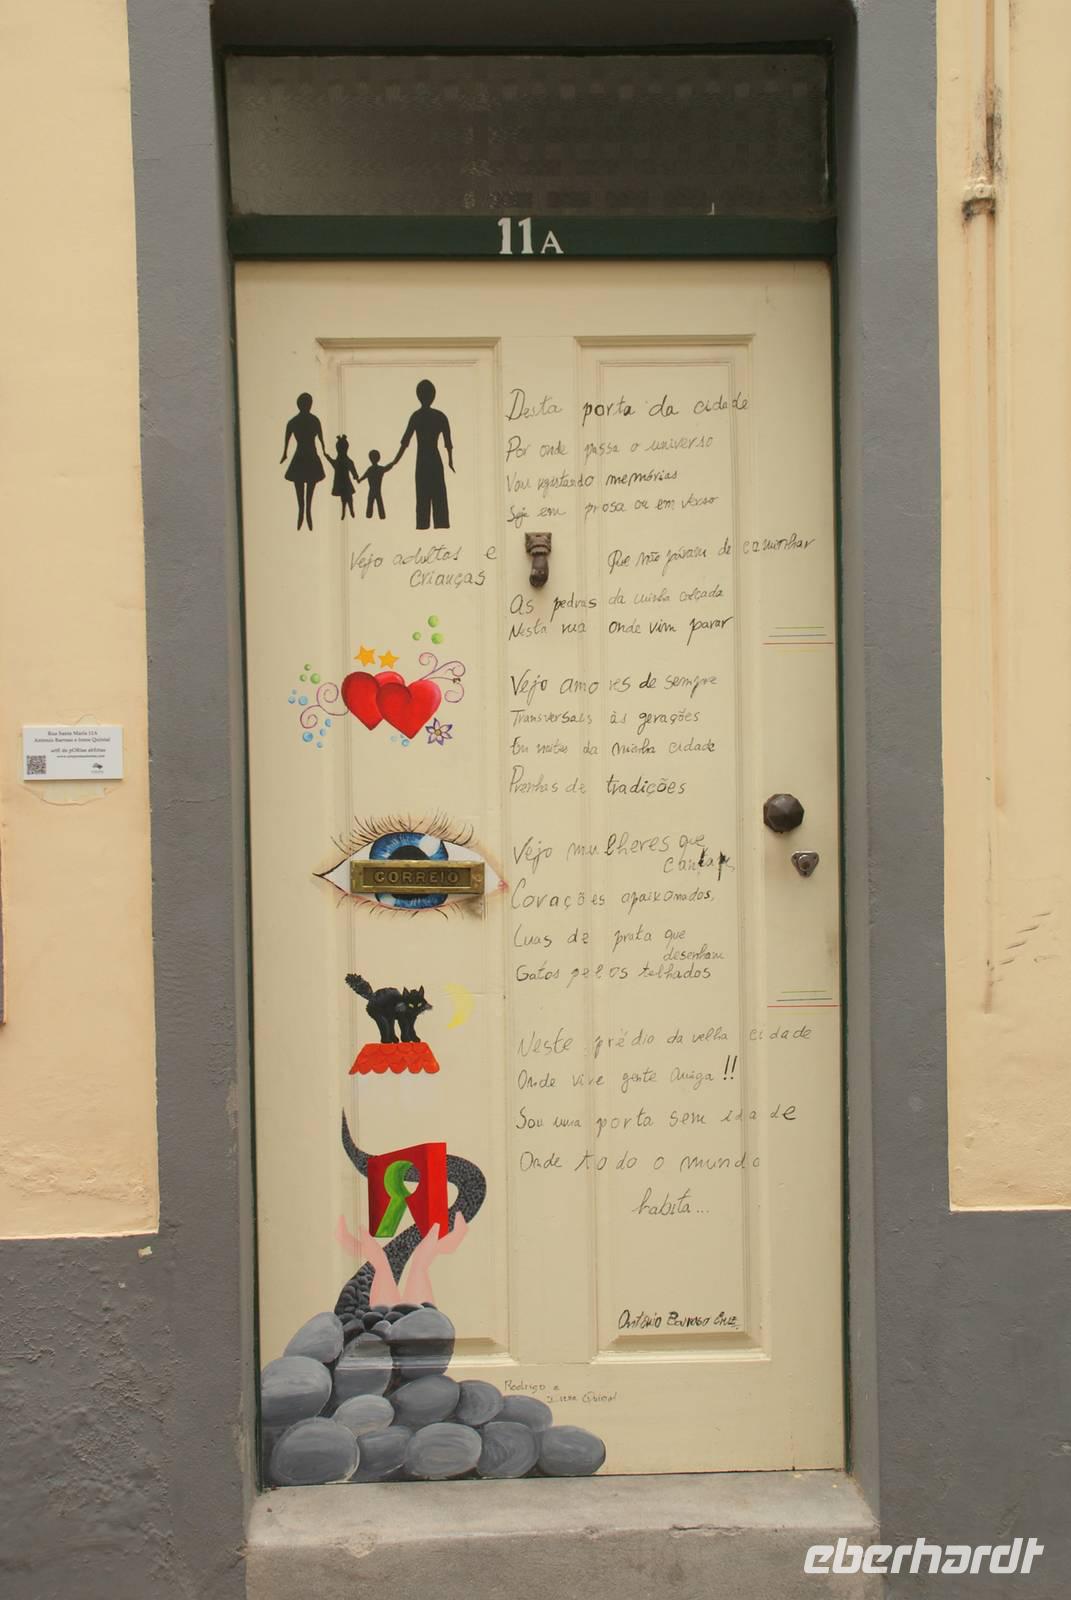 11A
Desta porta da cidade
Por onde passa o universo
Vou registando memórias
Seja em prosa ou em verso
Vejo adultos e
crianças
Que não páram de caminhar
As pedras da minha calçada
Nesta rua onde vim parar
Vejo amores de sempre
Transversais às gerações
Em noites da minha cidade
Prenhas de tradições
CORREIO
Vejo mulheres que
cantam
Corações apaixonados,
Luas de prata que
desenham
Gatos pelos telhados
Neste prédio da velha cidade
Onde vive gente amiga!!
Sou uma porta sem idade
Onde todo o mundo
habita...
António Barroso Cruz
Rodrigo e
Irene Quintal
Rua Santa Maria 11A
António Barroso e Irene Quintal
artE de pORtas abErtas
eberhardt